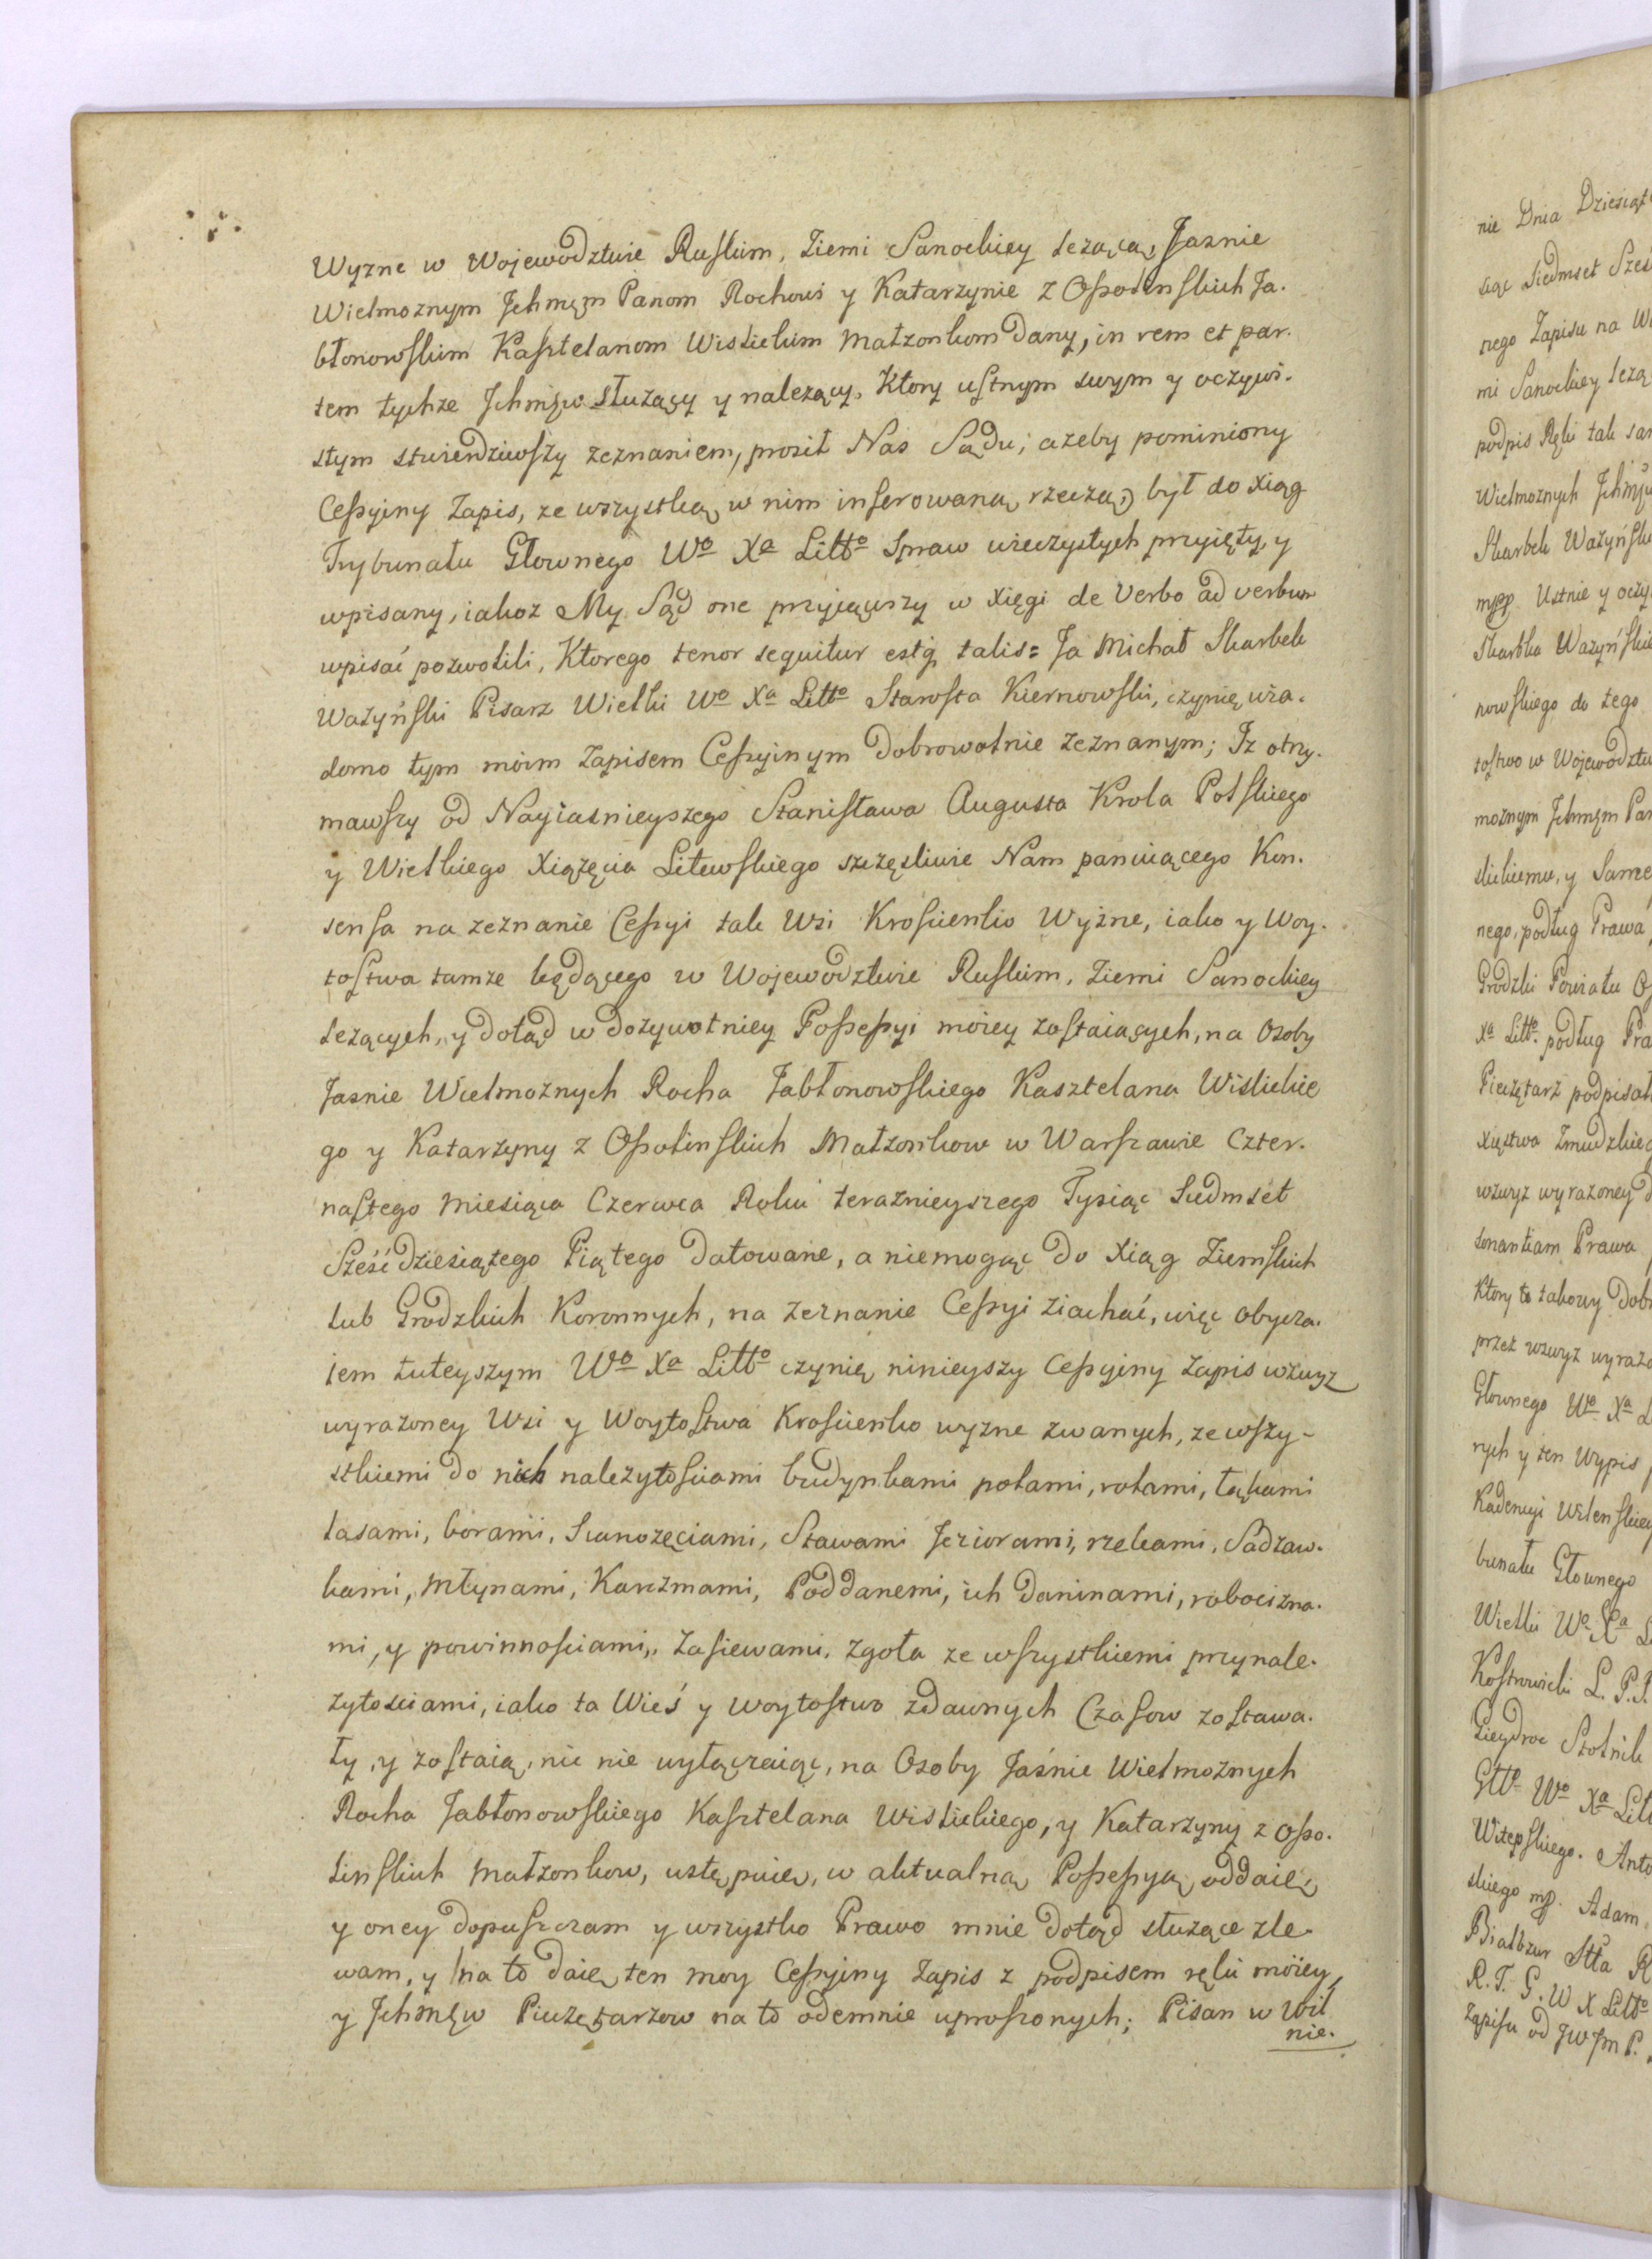 Wyzne w Wojewodztwie Ruskim, Ziemi Sanockiey lezącą, Jasnie
Wielmoznym Jchmcm Panom Rochowi y Katarzynie z Ossolinskich Ja-
błonowskim Kasztelanom Wislickim Małzonkom dany, in rem et par-
tem tychze Jchmćw służący y nalezący, Ktory ustnym swym y oczywi-
stym stwierdziwszy zeznaniem, prosił Nas Sądu; azeby pominiony
Cessyiny Zapis, ze wszystką w nim inserowaną rzeczą, był do Xiąg
Trybunału Głownego Wo Xa Litto Spraw wieczystych przyięty, y
wpisany, iakoz My Sąd one przyiąwszy w Xięgi de Verbo ad verbum
wpisać pozwolili, Ktorego tenor sequitur estq talis: Ja Michał Skarbek
Ważyński Pisarz Wielki Wo Xa Litto Starosta Kiernowski, czynię wia-
domo tym moim Zapisem Cessyinym Dobrowolnie zeznanym; Iz otrzy-
mawszy od Nayiasnieyszego Stanisława Augusta Krola Polskiego
y Wielkiego Xiążęcia Litewskiego szczęsliwie Nam panuiącego Kon-
sensa na zeznanie Cessyi tak Wsi Krosiienko Wyżne, iako y Woy-
tostwa tamze będącego w Wojewodztwie Ruskim, Ziemi Sanockiey
lezących, y dotąd w dozywotniey Possessyi moiey zostaiących, na Osoby
Jasnie Wielmoznych Rocha Jabłonowskiego Kasztelana Wislickie
go y Katarzyny z Ossolinskich Małzonkow w Warszawie Czter-
nastego Miesiąca Czerwca Roku teraznieyszego Tysiąc Siedmset
Sześćdziesiątego Piątego Datowane, a niemogąc do Xiąg Ziemskich
lub Grodzkich Koronnych, na zeznanie Cessyi ziachać, więc obycza-
iem tuteyszym Wo Xa Litto czynię ninieyszy Cessyiny Zapis wzwyz
wyrazoney Wsi y Woytostwa Krosiienko wyzne zwanych, ze wszy-
stkiemi do nich nalezytosciami budynkami polami, rolami, łąkami
lasami, borami, Sianozęciami, Stawami Jeziorami, rzekami, Sadzaw-
kami, Młynami, Karczmami, Poddanemi, ich Daninami, robocizna-
mi, y powinnosciami, Zasiewami, zgoła ze wszystkiemi przynale-
zytosciami, iako ta Wieś y woytostwo zdawnych Czasow zostawa-
ły, y zostaią, nic nie wyłączaiąc, na Osoby Jaśnie Wielmożnych
Rocha Jabłonowskiego Kasztelana Wislickiego, y Katarzyny z Osso-
linskich Małzonkow, ustępuię, w aktualną Possessyą oddaię
y oney dopuszczam y wszystko Prawo mnie dotąd służące zle-
wam, y na to daię ten moy Cessyiny Zapis z podpisem ręki moiey
y Jchmćw Pieczętarzow na to odemnie uproszonych; Pisan w Wil
nie.
nie Dnia Dziesiąt
siąc Siedmset Szes
nego Zapisu na
mi Sanockiey lezą
podpis Ręki tak
Wielmoznych Jchmć
Skarbek Ważyńsk
mpp. Ustnie y oczy
Skarbka Ważyńskie
nowskiego do tego
tostwo w Wojewodztw
moznym Jchmcm Pan
slickiemu, y
nego, podług Prawa
Grodzki Powiatu
Xa Litto podług Pra
Pieczętarz podpisał
Xięstwa Zmudzkieg
wzwyz wyrazoney
sonantiam Prawa
Ktory to takowy Dobr
przez wzwyz wyrazo
Głownego Wo Xa L
nych y ten Wypis
Kadencyi Wilenskiey
bunału Głownego
Wielki Wo Xa L
Kostrowicki L. P. S.
Stolnik
Gtto Wo Xa Litt
Witepskiego. Anto
skiego mp. Adam
Białozor Stta R
R. T. G. W X Litto
Zapisu od JW Jm P.